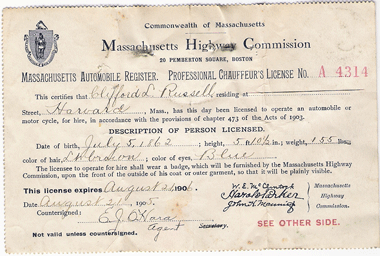 Commonwealth of Massachusetts
Massachusetts Highway Commission
20 PEMBERTON SQUARE, BOSTON
MASSACHUSETTS AUTOMOBILE REGISTER. PROFESSIONAL CHAUFFEUR'S LICENSE NO. A 4314
This certifies that Clifford L. Russell residing at
Street, Harvard Mass., has this day been licensed to operate an automobile or
motor cycle, for hire, in accordance with the provisions of chapter 473 of the Acts of 1903.
DESCRIPTION OF PERSON LICENSED.
Date of birth, July 5, 1862 ; height, 5 ft. 10½ in.; weight, 155 lbs.;
color of hair, Lt. brown ; color of eyes, Blue
The licensee to operate for hire shall wear a badge, which will be furnished by the Massachusetts Highway
Commission, upon the front of the outside of his coat or outer garment, so that it will be plainly visible.
This license expires August 21 1906.
Date August 21st 1905.
Countersigned: E. J. O'Hara
Agent Secretary.
Not valid unless countersigned.
W. E. McClintock
Harold Parker
John H. Manning
Massachusetts
Highway
Commission.
SEE OTHER SIDE.